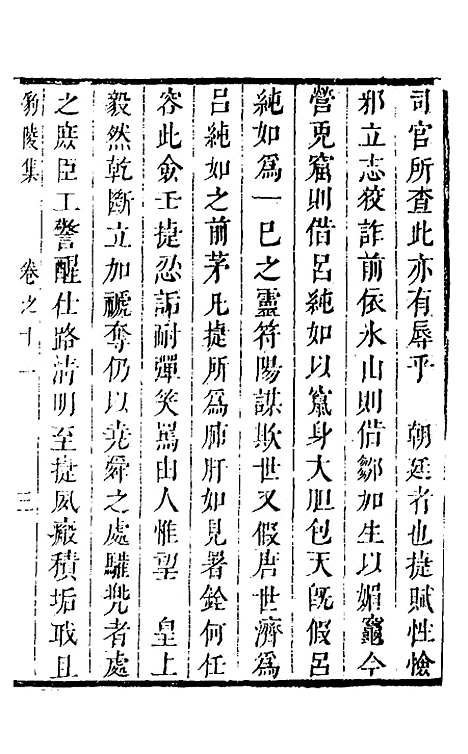 司官所查此亦有辱乎　朝廷者也捷賦性憸
邪立志狡詐前依氷山則借鄒加生以媚竈今
營兎窟則借呂純如以竄身大胆包天旣假呂
純如爲一巳之靈符陽謀欺世又假唐世濟爲
呂純如之前茅凡捷所爲肺肝如見署銓何任
容此僉壬捷忍詬耐彈笑罵由人惟望　皇上
毅然乾斷立加褫奪仍以堯舜之處驩兜者處
之庶臣工警醒仕路清明至捷夙癜積垢戢且
豹陵集　卷之十一　三